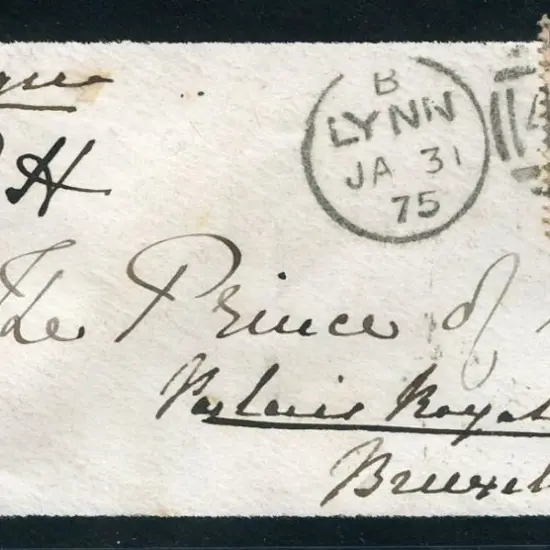 B
LYNN
JA 31
75
H
The Prince of
Palais Royal
Bruxel